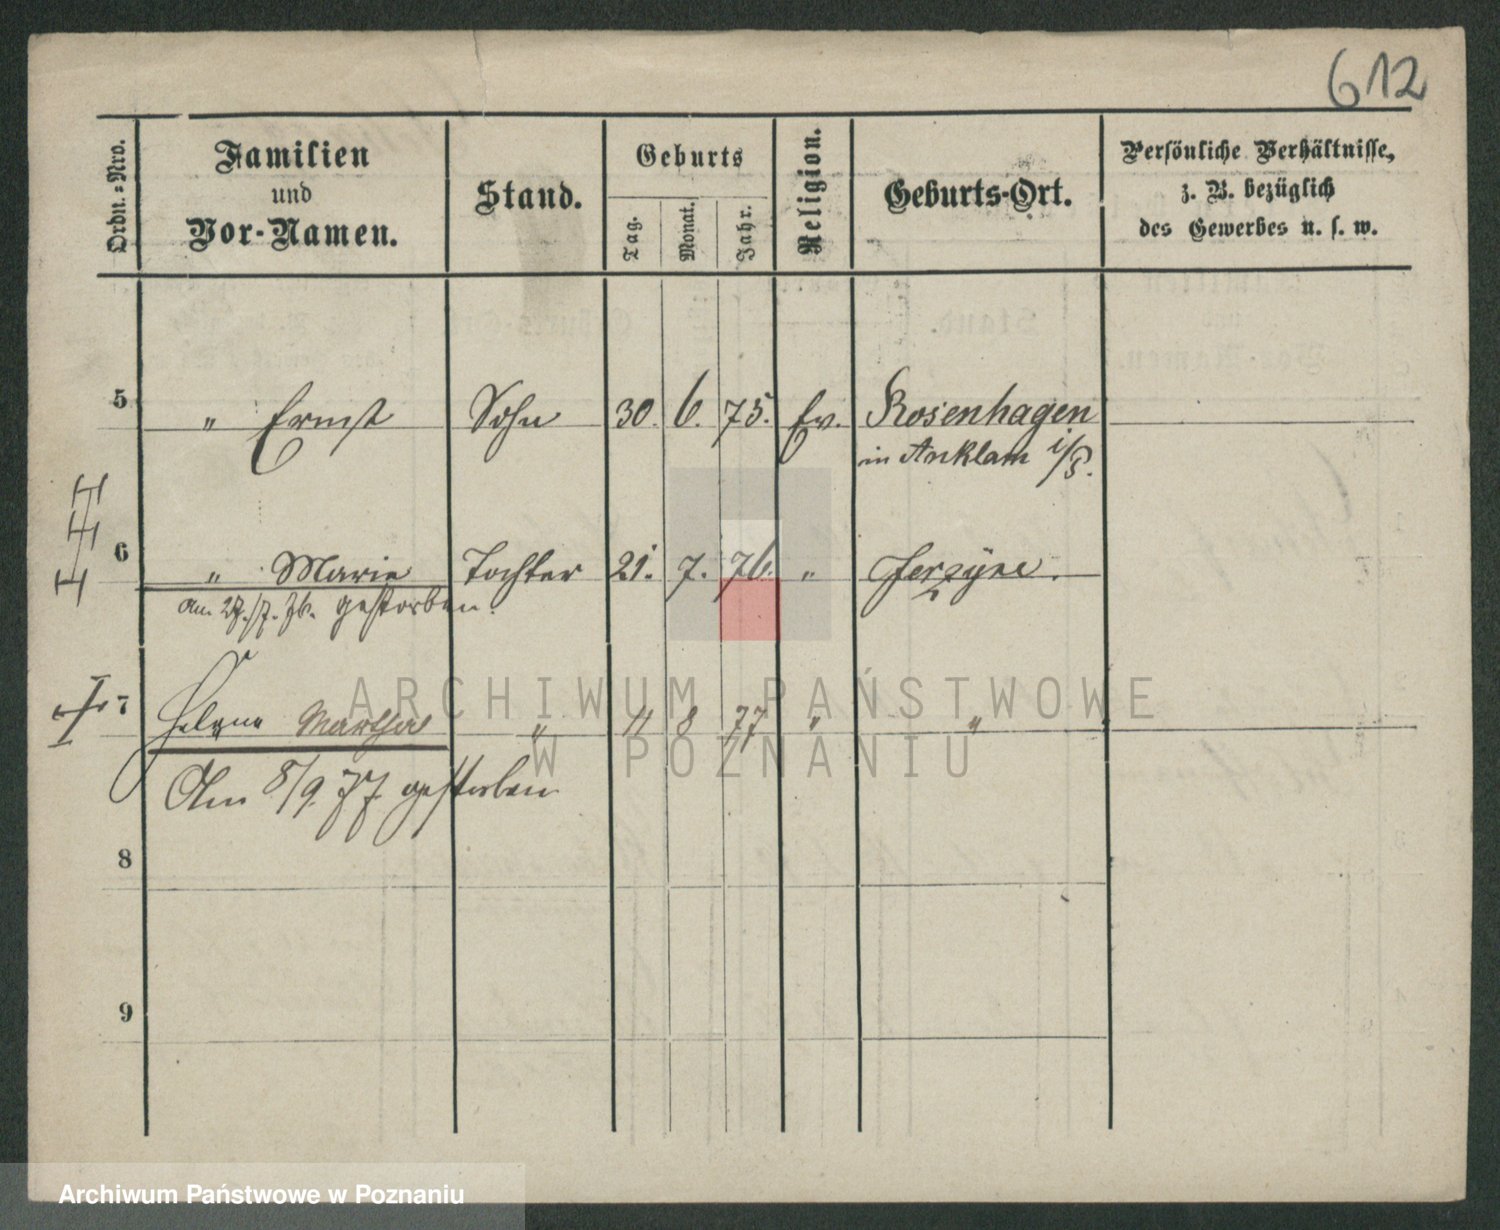 612
Ordn.=Nro.
Familien
und
Vor-Namen.
Stand.
Geburts
Tag.
Monat.
Jahr.
Religion.
Geburts-Ort.
Persönliche Verhältnisse,
z. B. bezüglich
des Gewerbes u. s. w.
5 " Ernst Sohn 30. 6. 75. Ev. Rosenhagen
in Anklam i/P.
6 " Marie Tochter 21. 7. 76. " Jerzyce.
am 27./7. 76. gestorben.
7 Helene Martha " 11 8 77 " "
Am 8/9. 77 gestorben
8
9
ARCHIWUM PAŃSTWOWE
W POZNANIU
Archiwum Państwowe w Poznaniu